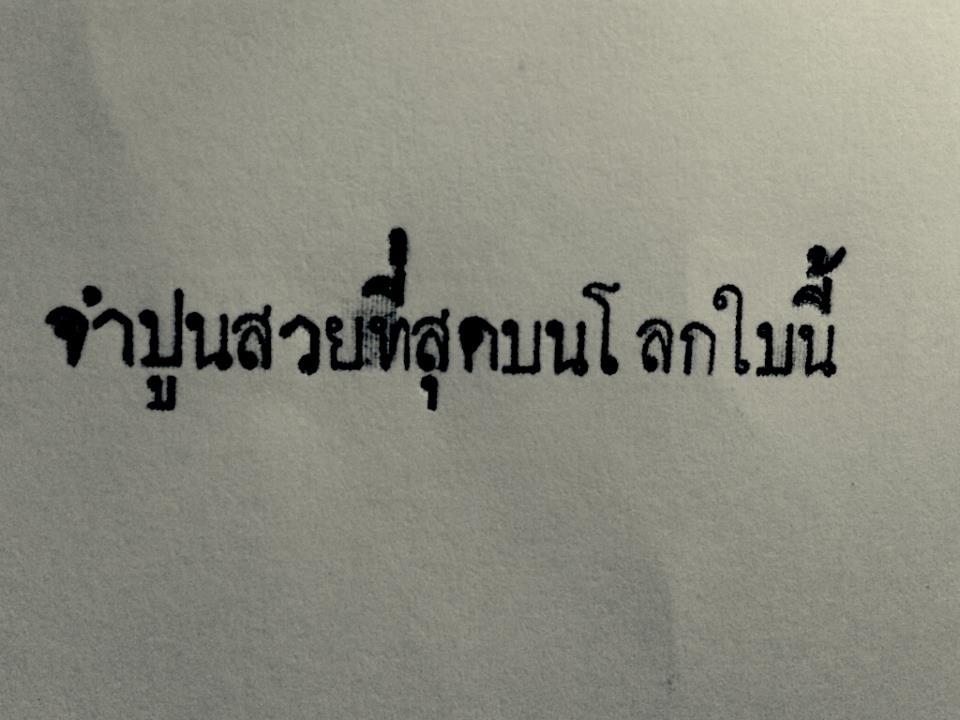 จำปูนสวยที่สุดบนโลกใบนี้